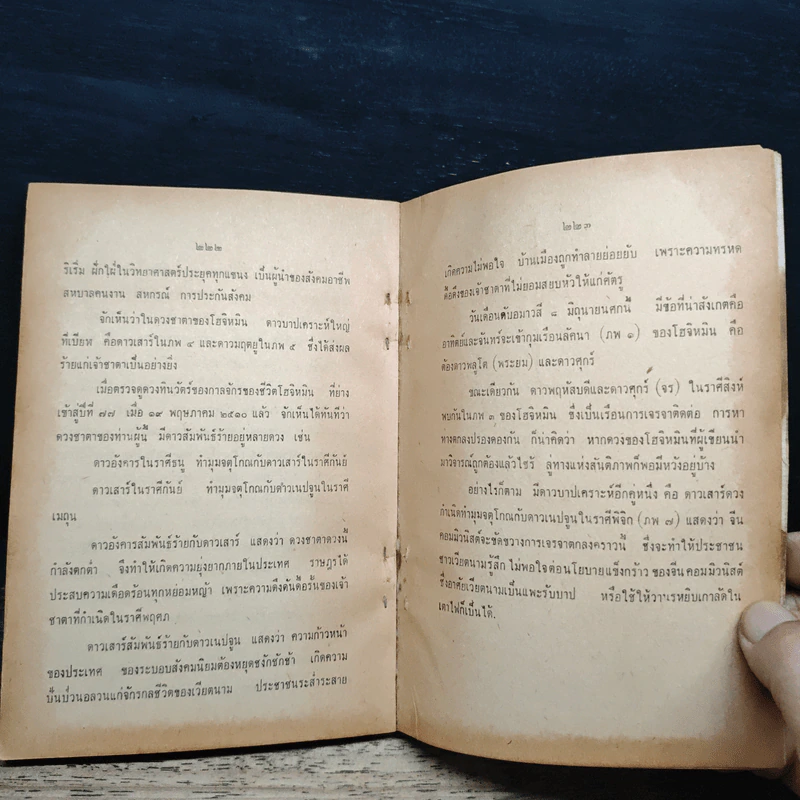 ๒๒๒
ริเริ่ม ฝักใฝ่ในวิทยาศาสตร์ประยุคทุกแขนง เป็นผู้นำของสังคมอาชีพ
สหบาลคนงาน สหกรณ์ การประกันสังคม
จักเห็นว่าในดวงชาตาของโฮจิหมิน ดาวบาปเคราะห์ใหญ่
ที่เบียฬ คือดาวเสาร์ในภพ ๔ และดาวมฤตยูในภพ ๕ ซึ่งได้ส่งผล
ร้ายแก่เจ้าชาตาเป็นอย่างยิ่ง
เมื่อตรวจดูดวงทินวัตร์ของกาลจักรของชีวิตโฮจิหมิน ที่ย่าง
เข้าสู่ปีที่ ๗๗ เมื่อ ๑๙ พฤษภาคม ๒๕๑๐ แล้ว จักเห็นได้ทันทีว่า
ดวงชาตาของท่านผู้นี้ มีดาวสัมพันธ์ร้ายอยู่หลายดวง เช่น
ดาวอังคารในราศีธนู ทำมุมจตุโกณกับดาวเสาร์ในราศีกันย์
ดาวเสาร์ในราศีกันย์ ทำมุมจตุโกณกับดาวเนปจูนในราศี
เมถุน
ดาวอังคารสัมพันธ์ร้ายกับดาวเสาร์ แสดงว่า ดวงชาตาดวงนี้
กำลังตกต่ำ จึงทำให้เกิดความยุ่งยากภายในประเทศ ราษฎรได้
ประสบความเดือดร้อนทุกหย่อมหญ้า เพราะความดึงดันดื้อรั้นของเจ้า
ชาตาที่กำเนิดในราศีพฤศภ
ดาวเสาร์สัมพันธ์ร้ายกับดาวเนปจูน แสดงว่า ความก้าวหน้า
ของประเทศ ของระบอบสังคมนิยมต้องหยุดชงักชักช้า เกิดความ
ปั่นป่วนอลวนแก่จักรกลชีวิตของเวียดนาม ประชาชนระส่ำระสาย
๒๒๓
เกิดความไม่พอใจ บ้านเมืองถูกทำลายย่อยยับ เพราะความทรหด
ดื้อดึงของเจ้าชาตาที่ไม่ยอมสยบหัวให้แก่ศัตรู
วันเดือนดับอมาวสี ๘ มิถุนายนศกนี้ มีข้อที่น่าสังเกตคือ
อาทิตย์และจันทร์จะเข้ากุมเรือนลัคนา (ภพ ๑) ของโฮจิหมิน คือ
ต้องดาวพลูโต (พระยม) และดาวศุกร์
ขณะเดียวกัน ดาวพฤหัสบดีและดาวศุกร์ (จร) ในราศีสิงห์
พบกันในภพ ๓ ของโฮจิหมิน ซึ่งเป็นเรือนการเจรจาติดต่อ การหา
ทางตกลงปรองดองกัน ก็น่าคิดว่า หากดวงของโฮจิหมินที่ผู้เขียนนำ
มาวิจารณ์ถูกต้องแล้วไซร้ ลู่ทางแห่งสันติภาพก็พอมีหวังอยู่บ้าง
อย่างไรก็ตาม มีดาวบาปเคราะห์อีกคู่หนึ่ง คือ ดาวเสาร์ดวง
กำเนิดทำมุมจตุโกณกับดาวเนปจูนในราศีพิจิก (ภพ ๗) แสดงว่า จีน
คอมมิวนิสต์จะขัดขวางการเจรจาตกลงคราวนี้ ซึ่งจะทำให้ประชาชน
ชาวเวียดนามรู้สึกไม่พอใจต่อนโยบายแข็งกร้าวของจีนคอมมิวนิสต์
ซึ่งอาศัยเวียดนามเป็นแพะรับบาป หรือใช้ให้วานรหยิบเกาลัดใน
เตาไฟก็เป็นได้.